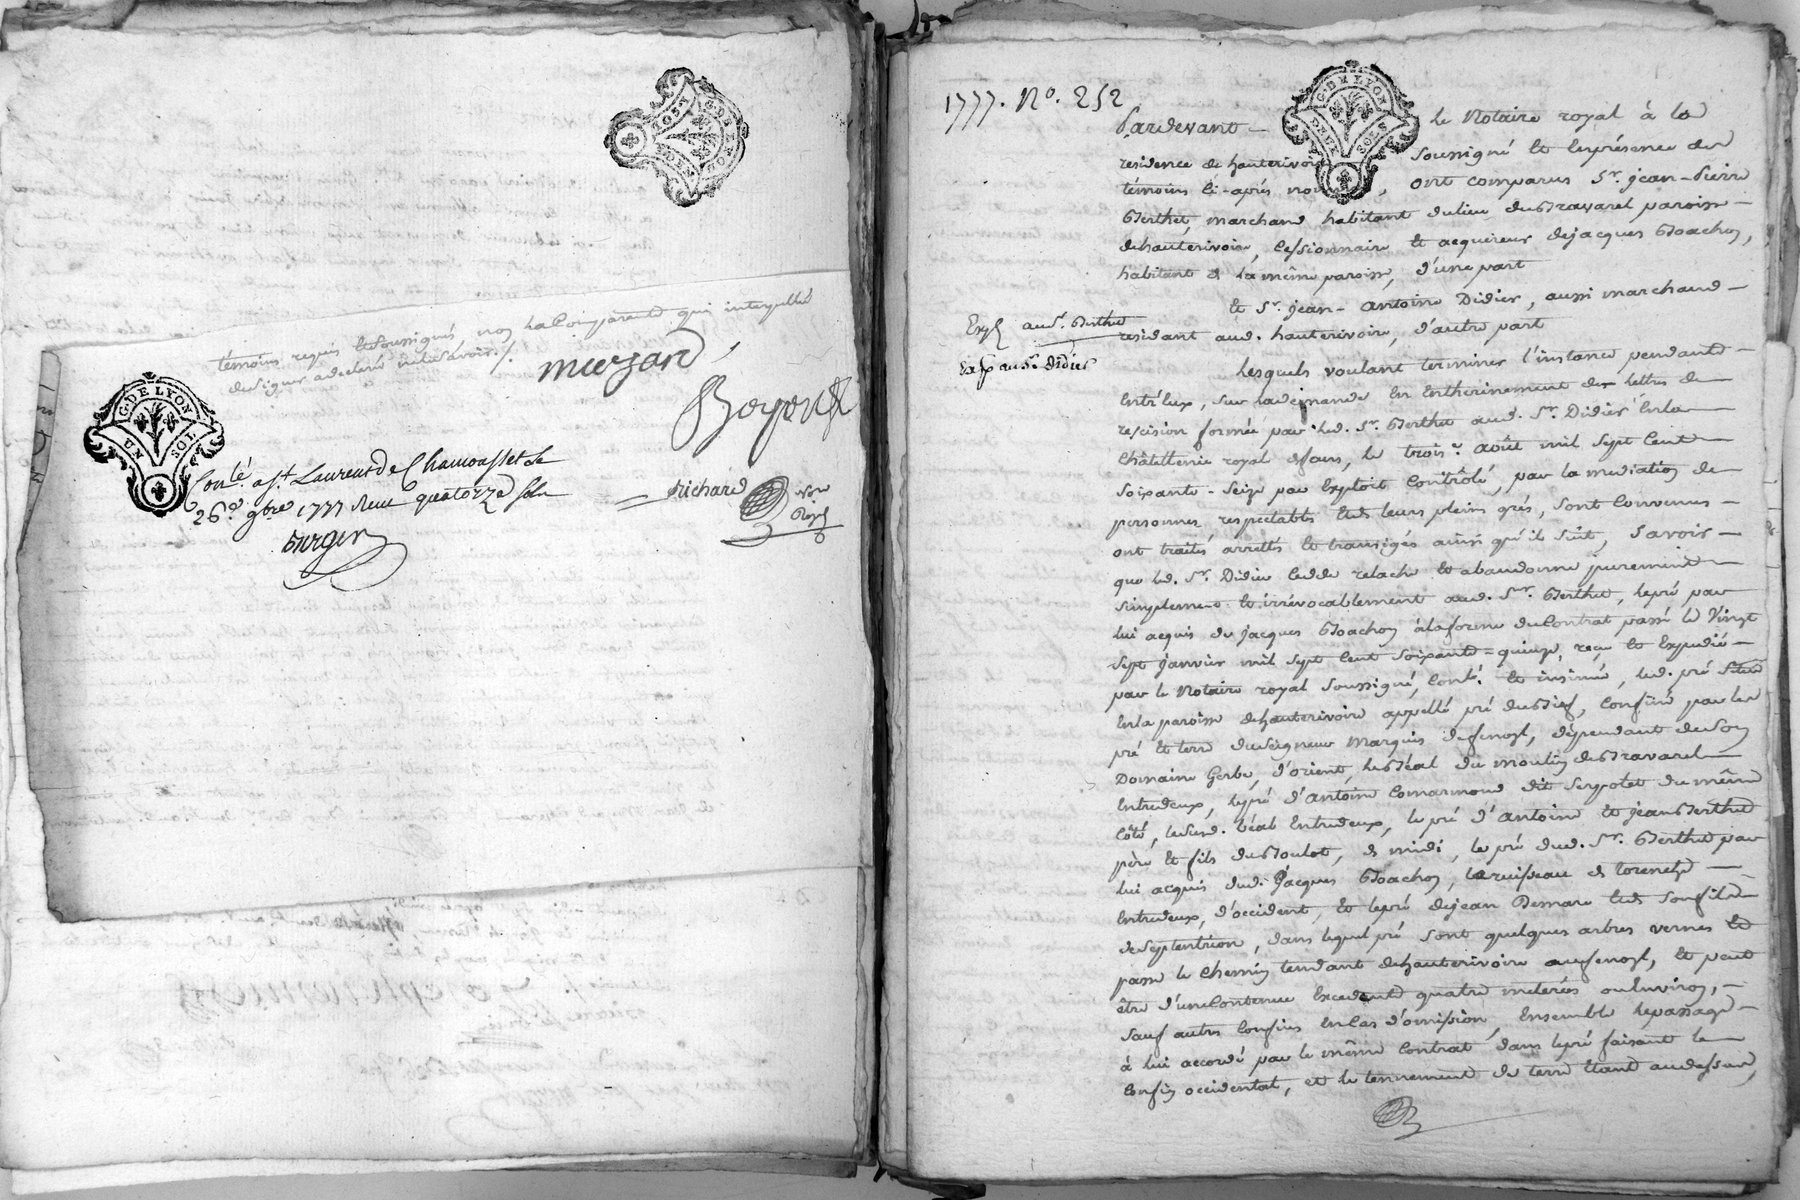 témoins requis et soussignés non la Comparante qui interpellée
de signer a declaré ne le savoir ./.
meyzard
Boyer
G. DE LYON
UN SOL
Conlé. a St Laurent de Chamousset le
26e. 9bre 1777 Reçu quatorze sols
richard
Nore
Royal
G. DE LYON
DEUX SOLS
1777. No. 252
Pardevant — Le Notaire royal à la
résidence de hauterivoire Soussigné et En présence des
témoins ci-après nommés, ont comparus Sr. jean-Pierre
Berthet, marchand habitant du lieu du Travarel paroisse —
de hauterivoire, Cessionnaire et acquéreur de jacques Goachon,
habitant de la même paroisse, d'une part
Et Sr. jean-antoine Didier, aussi marchand —
résidant aud. hauterivoire, d'autre part
Exp. aud. Sr. Berthet
Exp. aud. Sr. Didier
Lesquels voulant terminer l'instance pendante —
Entr'Eux, Sur la demande En Enthérinement des lettres de
rescision formée par led. Sr. Berthet aud. Sr. Didier En la
Châtellenie royal de le trois août mil Sept Cent
Soixante-Seize par Exploit Contrôlé, par la médiation de
personnes respectables Et de leurs pleins grés, Sont Convenus —
ont traités arrettés Et transigés ainsi qu'il Suit, Savoir —
que led. Sr. Didier Cedde relache Et abandonne purement
Simplement Et irrévocablement aud. Sr. Berthet, le pré par
lui acquis de jacques Goachon à la forme du Contrat passé le Vingt
Sept janvier mil Sept Cent Soixante-quinze, reçu Et Expédié —
par le Notaire royal Soussigné, Conlé. Et insinué, led. pré Situé
En la paroisse de hauterivoire appellé pré du Bief, Confiné par les
pré Et terre du Seigneur Marquis de fenoyl, dépendant de Son
Domaine Gerbe, d'orient, le Béal du moulin du Travarel —
Entredeux, le pré d'antoine Comarmond dit Serpolet du même
Côté, le Susd. béal Entredeux, le pré d'antoine Et jean Berthet
père Et fils du Boulot, de midi, le pré dud. Sr. Berthet par
lui acquis dud. jacques Goachon, le ruisseau de —
Entredeux, d'occident, Et le pré de jean Et Son fils
de Septentrion, dans lequel pré Sont quelques arbres vernes Et
passe le Chemin tendant de hauterivoire au fenoyl, Et peut
être d'une Contenue Excedent quatre méterées ou Environ, —
Sauf autres Confins En Cas d'omission Ensemble le passage —
à lui accordé par le même Contrat dans le pré faisant le —
Confin occidental, et le tennement de terre Etant au dessus,